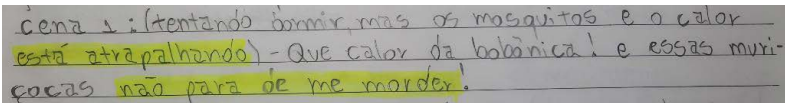 cena 1: (tentando dormir, mas os mosquitos e o calor
está atrapalhando) - Que calor da bobônica! e essas muri-
çocas não para de me morder!